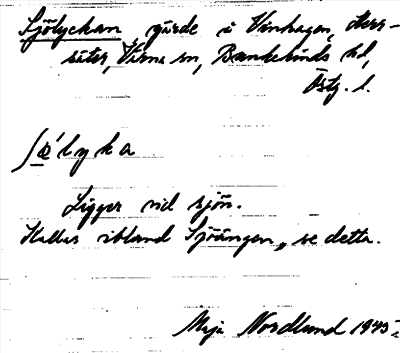 Sjölyckan gärde i Vinhagen, Herr-
säter, Värna sn, Bankekinds hd,
Östg. l.
ʃö̀lyka
Ligger vid sjön.
Kallas ibland Sjöängen, se detta.
Maja Nordlund 1945